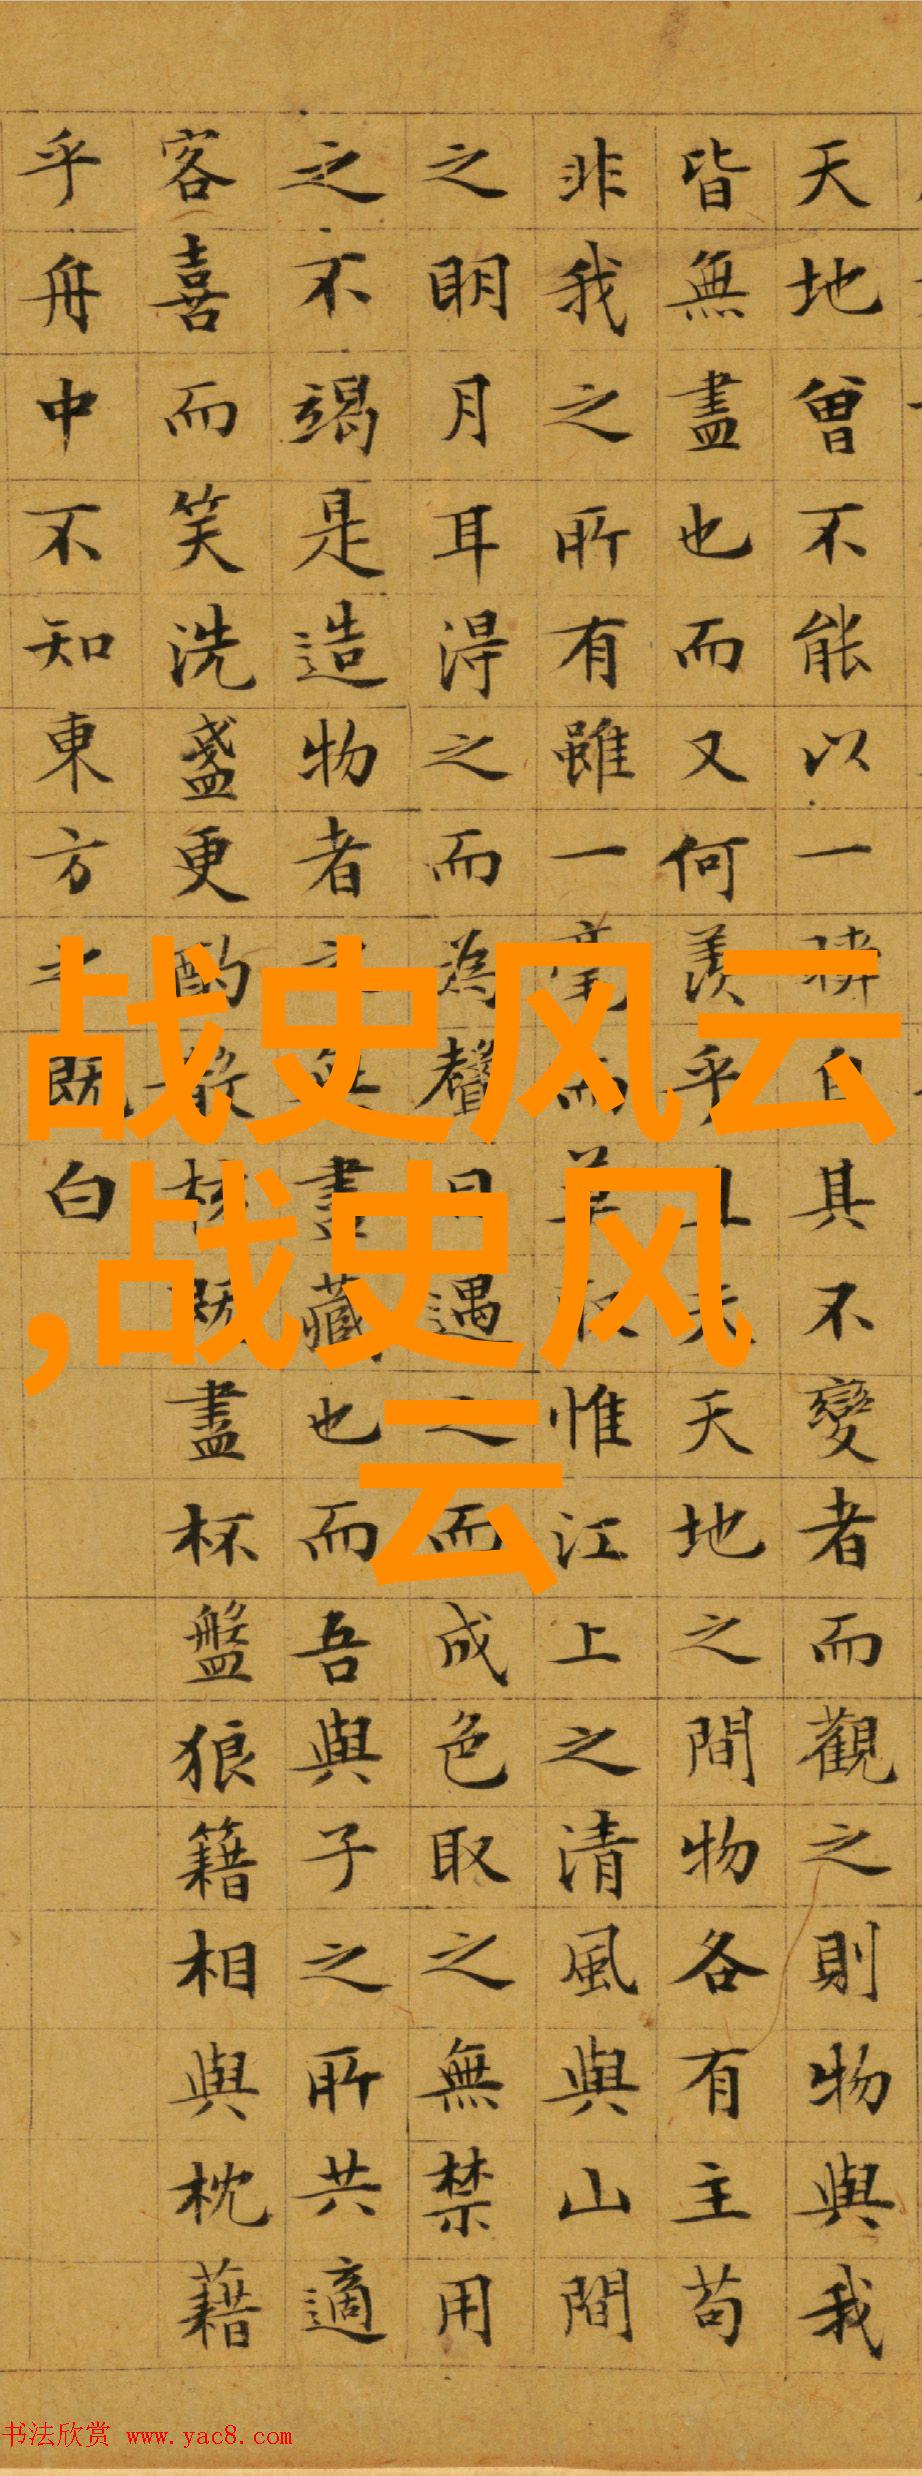 天地曾不能以一瞬自其不變者而觀之則物與我
皆無盡也而又何羨乎且夫天地之間物各有主苟
非我之所有雖一毫而莫取惟江上之清風與山間
之明月耳得之而為聲目遇之而成色取之無禁用
之不竭是造物者之無盡藏也而吾與子之所共適
客喜而笑洗盞更酌殽核既盡杯盤狼籍相與枕藉
乎舟中不知東方之既白
战史风云
,战史风
云
书法欣赏 www.yac8.com